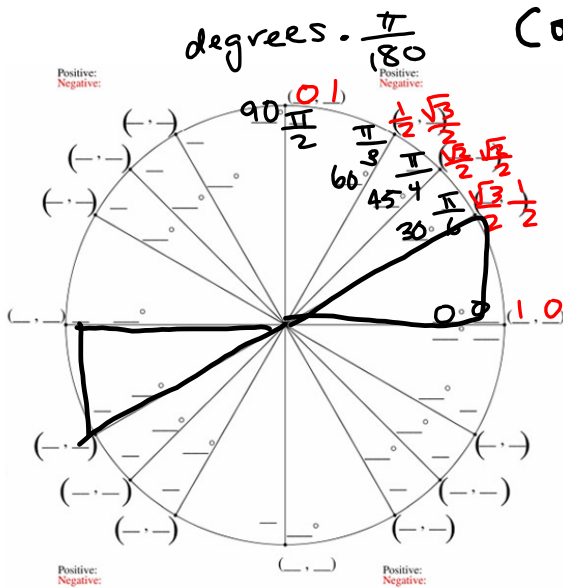 degrees · π/180 Co
Positive:
Negative:
Positive:
Negative:
90° π/2 (0, 1)
60° π/3 (1/2, √3/2)
45° π/4 (√2/2, √2/2)
30° π/6 (√3/2, 1/2)
0° 0 (1, 0)
(__, __) __ __°
(__, __) __ __°
(__, __) __ __°
(__, __) __ __°
(__, __) __ __°
(__, __) __ __°
(__, __) __ __°
(__, __) __ __°
(__, __) __ __°
(__, __) __ __°
(__, __) __ __°
Positive:
Negative:
Positive:
Negative: